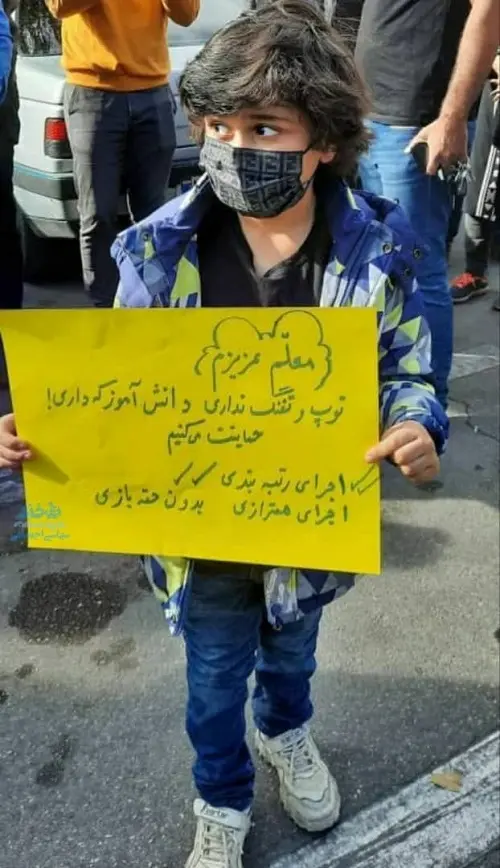 معلّم عزیزم
توپ و تفنگ نداری دانش آموز که داری!
حمایت می‌کنیم
اجرای رتبه بندی
اجرای همترازی
بدون حقه بازی